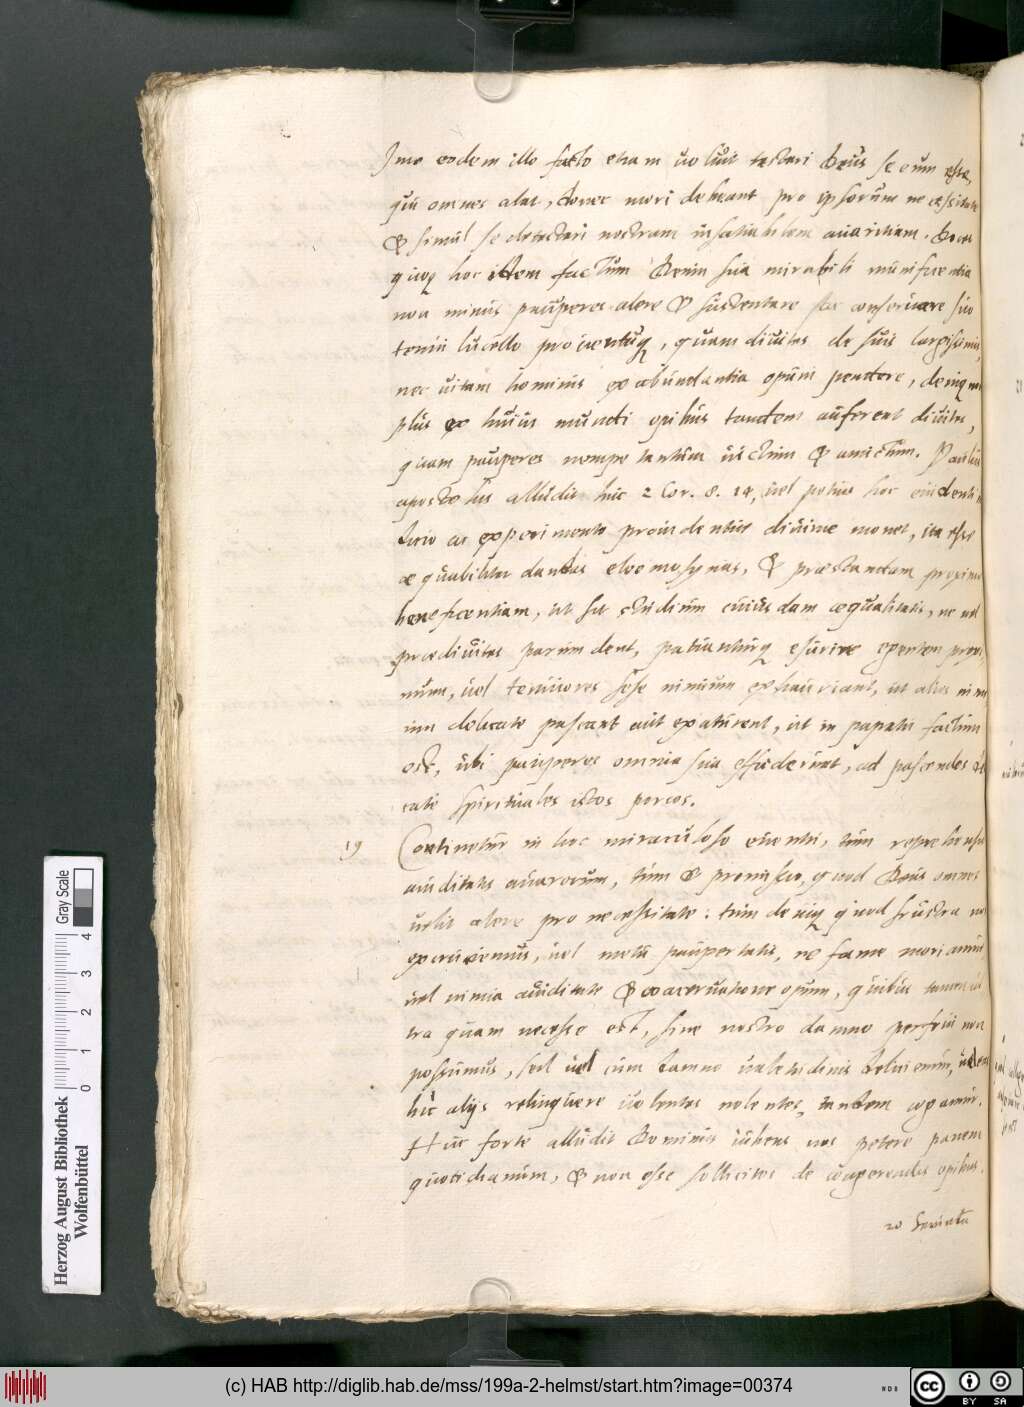 Imo eodem illo facto etiam uoluit testari Deus se eum esse,
qui omnes alat, donec mori debeant pro ipsorum necessitate
& simul se detestari nostram insatiabilem auaritiam. Docet
quoq hoc idem factum Deum sua mirabili munificentia
non minus pauperes alere & sustentare seu conseruare suo
tenui lucello prouentuq, quam diuites de suis largissimis,
nec uitam hominis ex abundantia opum pendere, deniq non
plus ex huius mundi opibus tandem auferent diuites,
quam pauperes nempe tantum uictum & amictum. Paulus
apostolus alludit huc 2 Cor. 8. 14, uel potius hoc euidenti
ac experimento prouidentiae diuinae monet, ita esse
aequabiliter dandas eleemosynas, & praestandam proximo
beneficentiam, ut sit studium cuiusdam aequalitatis, ne uel
praediuites parum dent, patianturq esurire egentem proxi
mum, uel tenuiores sese nimium exhauriant, ut alios nimi
um delicate pascant aut exaturent, ut in papatu factum
est, ubi pauperes omnia sua effuderunt, ad pascendos de
cate spirituales istos porcos.
19 Continetur in hoc miraculoso euentu, tum reprehensio
auiditatis auarorum, tum & promissio, quod Deus omnes
uelit alere pro necessitate: tum deniq quod frustra nos
excruciemus, uel metu paupertatis, ne fame moriamur
uel nimia auiditate & coaceruatione opum, quibus tamen ul
tra quam necesse est, sine nostro damno perfrui non
possumus, sed uel cum damno ualetudinis
hic alijs relinquere uolentes nolentes, tandem cogamur.
Huc forte alludit Dominus iubens nos petere panem
quotidianum, & non esse sollicitos de comparandis opibus.
20
Herzog August Bibliothek
Wolfenbüttel
0 1 2 3 4
Gray Scale
(c) HAB http://diglib.hab.de/mss/199a-2-helmst/start.htm?image=00374
cc BY SA